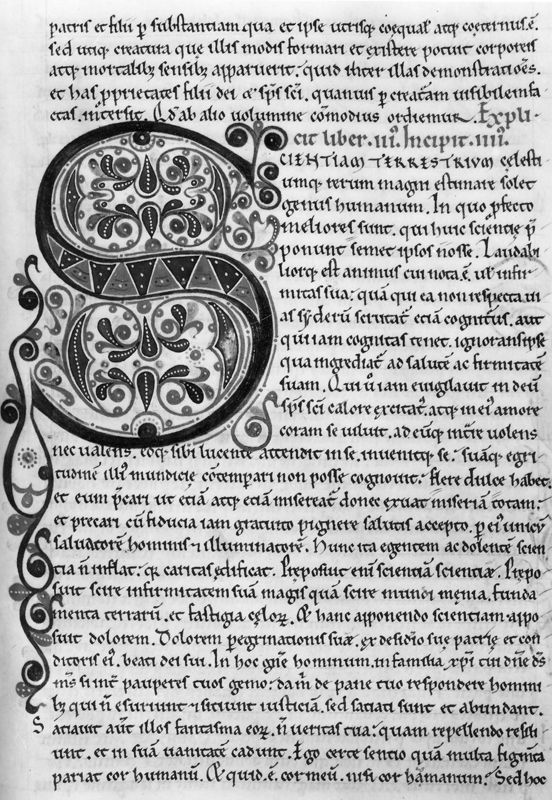 patris et filii p̱ substantiam qua et ipse utrisq; coequal' atq; coeternus. ē.
sed utiq; creatura que illis modis formari et existere potuit corporeis
atq; mortalib; sensib; apparuerit. quid inter illas demonstratiōes.
et has p̱prietates filii dei & sp̄s sc̄i. quamuis p̱ creat̄am uisibilem fa
ctas. intersit. Qd̄ ab alio uolumine cōmodius ordiemur. Expli
cit liber. iii. Incipit. iiii.
SCIENTIAM TERRESTRIUM celesti
umq; rerum magni estimare solet
genus humanum. In quo p̱fecto
meliores sunt. qui huic scientię p̄
ponunt semet ipsos nosse. Laudabi
liorq; est animus cui nota. ē. uel infir
mitas sua. quā qui ea non respecta. ui
as syderū scrutat̄ etiā cogniturus. aut
qui iam cognitas tenet. ignorans ipse
qua ingrediat̄ ad salutē ac firmitatē
suam. Qui ū iam euigilauit in deū
sp̄s sc̄i calore excitat'. atq; in ei' amore
coram se uiluit. ad eūq; int̄re uolens
nec ualens. eoq; sibi lucente attendit in se. inuenitq; se. suāq; egri
tudinē illi' mundicie cōtempari non posse cognouit. flere dulce habet.
et eum p̄cari ut etiā atq; etiā misereat̄ donec exuat miseriā totam.
et precari cū fiducia iam gratuito pignere salutis accepto. p̱ ei' unicū
saluatorē hominis & illuminatorē. Hunc ita egentem ac dolentē scien
tia n̄ inflat. q; caritas ędificat. Preposuit eni scientiā scientiæ. Prepo
suit scire infirmitatem suā magis quā scire mundi męnia. funda
menta terrarū. et fastigia cęloꝝ. & hanc apponendo scientiam appo
suit dolorem. Dolorem p̱egrinationis suæ. ex desidio suę patrię et con
ditoris ei'. beati dei sui. In hoc gn̄e hominum. in familia. xp̄i tui dn̄e d̄s
m̄s si int̄ pauperes tuos gemo. da m̄ de pane tuo respondere homini
b; qui n̄ esuriunt & sitiunt iusticiā. sed satiati sunt et abundant.
Satiauit aut̄ illos fantasma eoꝝ. n̄ ueritas tua. quam repellendo resili
unt. et in suā uanitatē cadunt. Ego certe sentio quā multa figm̄ta
pariat cor humanū. & quid. ē. cor meū. nisi cor humanum. Sed hoc